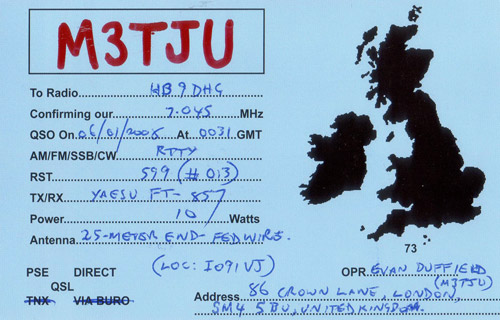 M3TJU
To Radio HB9DHG
Confirming our 7.045 MHz
QSO On 06/01/2008 At 0031 GMT
AM/FM/SSB/CW RTTY
RST 599 (#013)
TX/RX YAESU FT-857
Power 10 Watts
Antenna 25-METER END-FED WIRE.
73
PSE DIRECT (LOC: IO91VJ)
QSL
TNX VIA BURO
OPR. EVAN DUFFIELD
(M3TJU)
Address 86 CROWN LANE, LONDON,
SM4 5BU, UNITED KINGDOM.